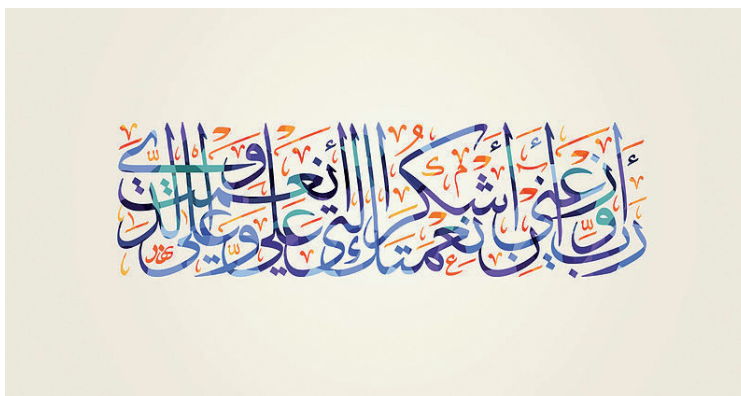 رب أوزعني أن أشكر نعمتك التي أنعمت علي وعلى والديّ